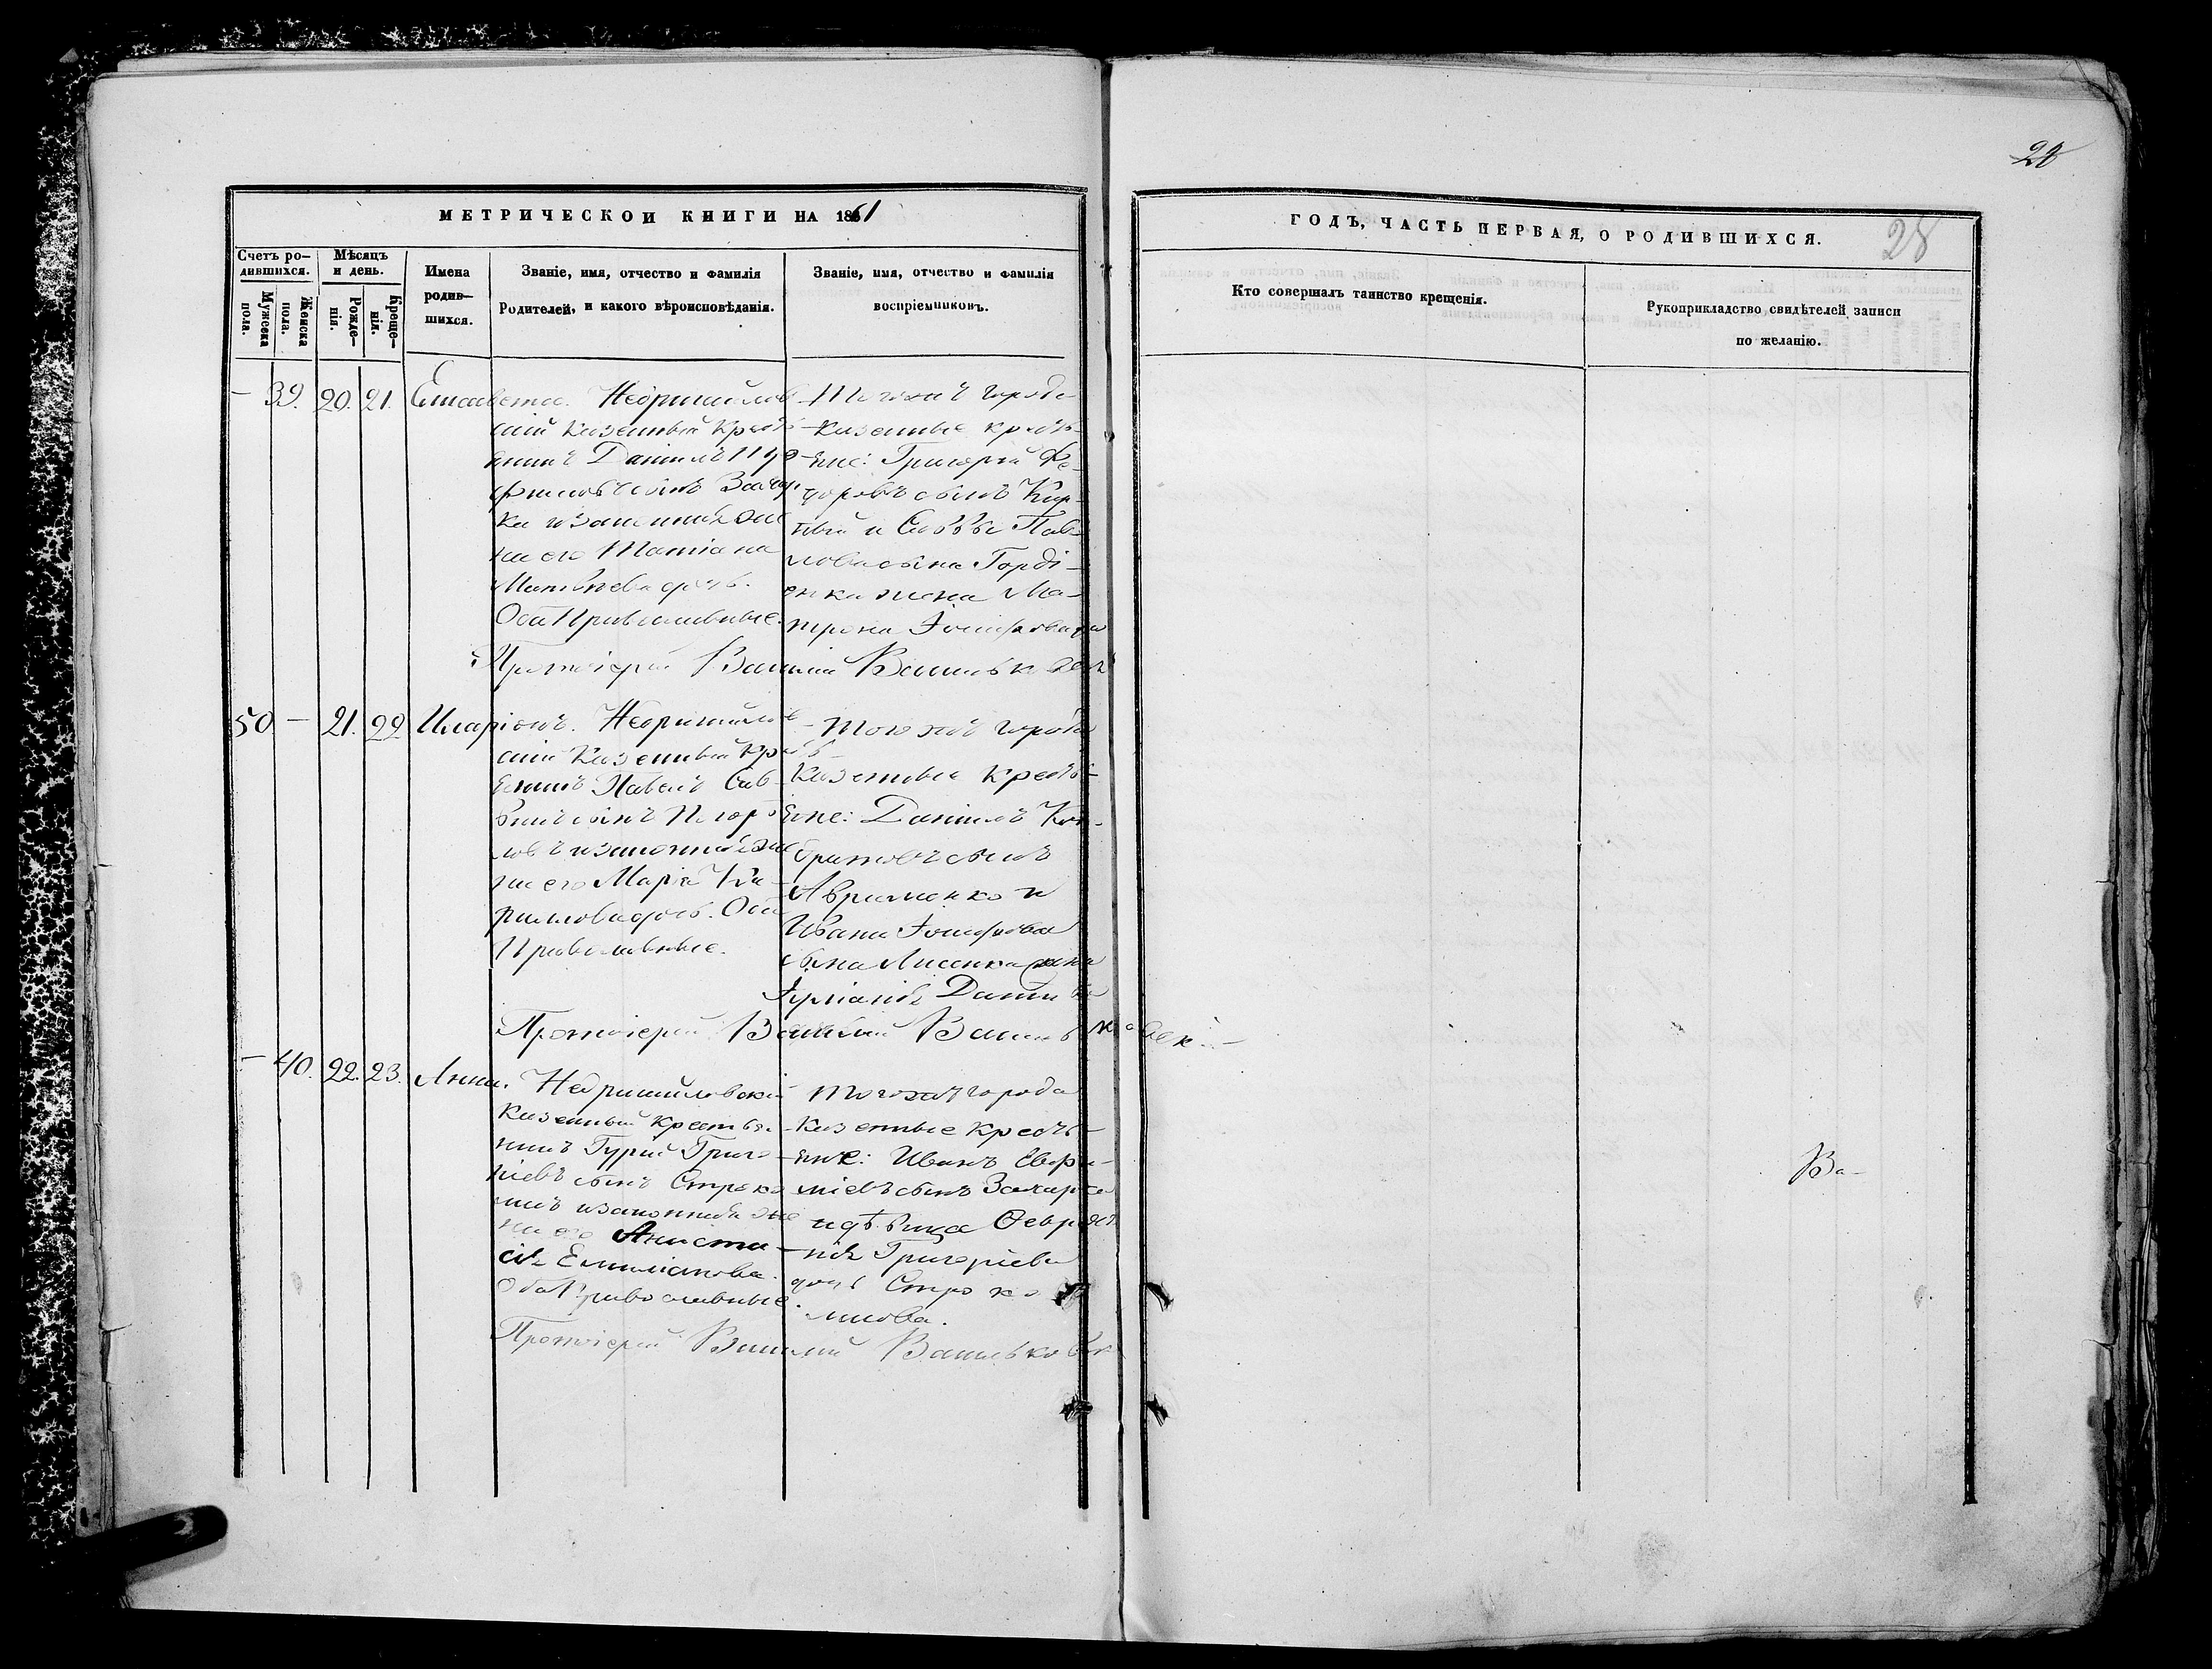 28
МЕТРИЧЕСКОЙ КНИГИ НА 1861
ГОДЪ, ЧАСТЬ ПЕРВАЯ, О РОДИВШИХСЯ.
28
Счетъ ро-
дившихся.
Мужеска
пола.
Женска
пола.
Мѣсяцъ
и день.
Рожде-
нія.
Креще-
нія.
Имена
родив-
шихся.
Званіе, имя, отчество и фамилія
Родителей, и какого вѣроисповѣданія.
Званіе, имя, отчество и фамилія
воспріемниковъ.
Кто совершалъ таинство крещенія.
Рукоприкладство свидѣтелей записи
по желанію.
- 39. 20. 21. Елисавета.
Недригайлов
скій казенный крестъ
янинъ Даніилъ
сынъ Захар
ка и законная же
на его Татіана
Матвѣева дочь.
Оба Православные.
Того жъ города
казенные крестъ-
яне: Григорій Фе-
доровъ сынъ
и Саввы Пав-
лова сына Горді-
енка жена Ма-
трона Іосифова
Протоіерей Василій Васильковскі
50 - 21. 22 Иларіонъ.
Недригайлов
скій Казенный Крестъ
янинъ Павелъ Сав
винъ сынъ
и законная же
на его Марія Ки-
рилова дочь. Оба
Православные.
Того жъ города
Казенные крестъ-
яне: Даніилъ Кон-
дратовъ сынъ
Авраменко и
Ивана Іосифова
сына Лисенка жена
Іуліанія Данил
Протоіерей Василій Васильковскі
- 40. 22. 23. Анна.
Недригайловскій
Казенный крестья
нинъ Гурій Григо-
ріевъ сынъ Строко
нъ и законная же
на его Анаста-
сія Емиліанова.
Оба Православные.
Того жъ города
Казенные крестъ-
яне: Иванъ Евфи-
міевъ сынъ Захарка
и дѣвица Февро
нія Григоріева
дочь Строко
нова.
Протоіерей Василій Васильковск
Ва-